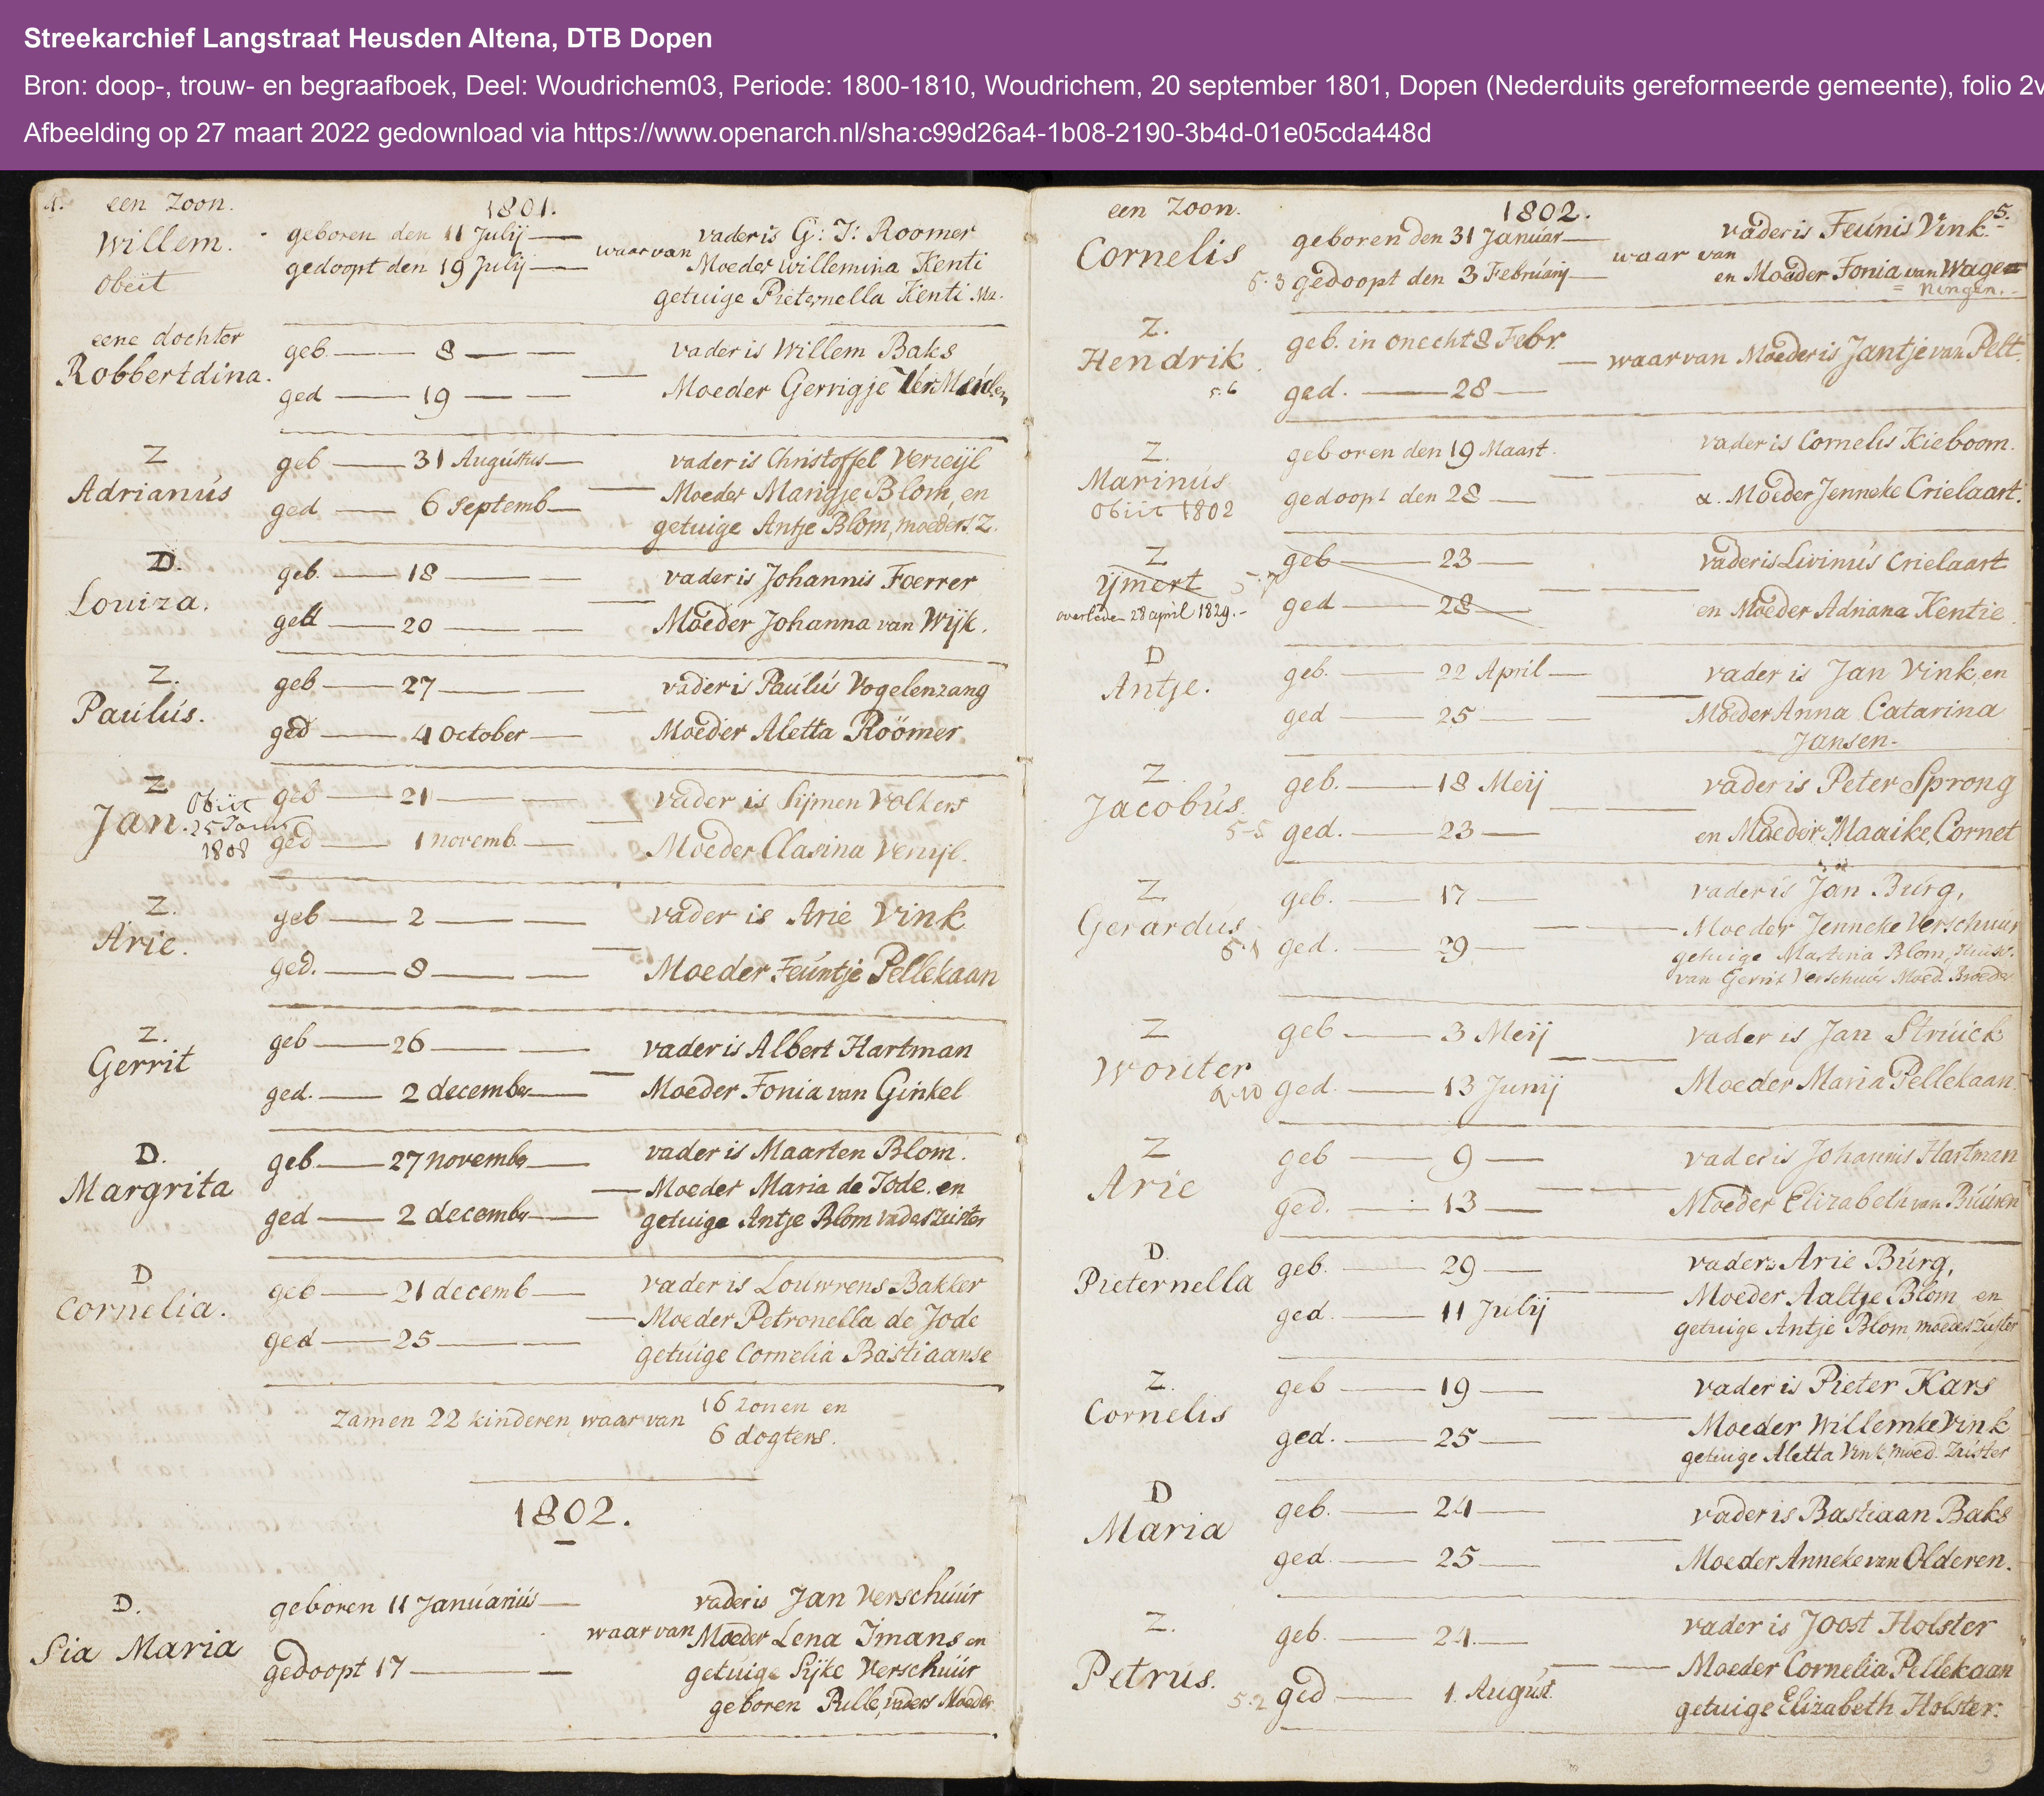 Streekarchief Langstraat Heusden Altena, DTB Dopen
Bron: doop-, trouw- en begraafboek, Deel: Woudrichem03, Periode: 1800-1810, Woudrichem, 20 september 1801, Dopen (Nederduits gereformeerde gemeente), folio 2v
Afbeelding op 27 maart 2022 gedownload via https://www.openarch.nl/sha:c99d26a4-1b08-2190-3b4d-01e05cda448d
4. een Zoon. 1801.
Willem. geboren den 11 Julij waarvan vader is G: J: Roomer
obiit gedoopt den 19 Julij Moeder willemina Kenti
getuige Pieternella Kenti
eene dochter
Robbertdina. geb. 8 vader is Willem Baks
ged 19 Moeder Gerrigje
Z
Adrianús geb 31 Augústus vader is Christoffel Verzeijl
ged 6 Septemb Moeder Marigje Blom, en
getuige Antje Blom, moeders Z.
D.
Louiza. geb. 18 vader is Johannis Foerrer
ged 20 Moeder Johanna van Wijk.
Z.
Paulús. geb 27 vader is Paulús Vogelenzang
ged 4 October Moeder Aletta Röömer
Z
Jan. Obiit 25 1808 geb 21 vader is Sijmen Volkers
ged 1 novemb. Moeder Clasina
Z.
Arie. geb 2 vader is Arie Vink
ged. 8 Moeder Feúntje Pellekaan
Z.
Gerrit geb 26 vader is Albert Hartman
ged. 2 december Moeder Fonia van Ginkel
D.
Margrita geb 27 novembr vader is Maarten Blom.
Moeder Maria de Jode. en
ged 2 decembr getuige Antje Blom vaders Zúster
D
Cornelia. geb 21 decemb vader is Louwrens Bakker
Moeder Petronella de Jode
ged 25 getuige Cornelia Bastiaanse
Zamen 22 kinderen waar van 16 zonen en
6 dogters.
1802.
D. geboren 11 Januariús vader is Jan Verschúúr
Pia Maria waar van Moeder Lena Imans en
gedoopt 17 getuige Sijke Verschúúr
geboren Pulle, vaders Moeder
een Zoon. 1802. 5.
Cornelis geboren den 31 Januar waar van vader is Feúnis Vink
5.3 gedoopt den 3 Februarij en Moeder Fonia van Wage=
ningen.
Z.
Hendrik geb. in onecht 8 Febr. waar van Moeder is Jantje van Pelt.
5.6 ged. 28
Z.
Marinús geboren den 19 Maart. vader is Cornelis Kieboom.
obiit 1802 gedoopt den 28 Moeder Jenneke Crielaart.
Z
Ijmert 5.7 geb 23 vader is Livinús Crielaart
overleden 28 april 1829. ged 28 en Moeder Adriana Kentie
D
Antje. geb. 22 April vader is Jan Vink, en
ged 25 Moeder Anna Catarina
Jansen.
Z
Jacobús geb. 18 Meij vader is Peter Sprong
5-5 ged. 23 en Moeder Maaike Cornet
Z.
Gerardus geb. 17 vader is Jan Búrg,
5.1 ged. 29 Moeder Jenneke Verschuur
getuige Martina Blom, Huisv.
van Gerrit Verschuur Moed. Broeder
Z
Wouter geb 3 Meij vader is Jan Strúick
ged. 13 Junij Moeder Maria Pellekaan
Z
Arie geb 9 vader is Johannis Hartman
ged. 13 Moeder Elizabeth van Búúren
D.
Pieternella geb. 29 vader is Arie Búrg,
Moeder Aaltje Blom en
ged. 11 Júlij getuige Antje Blom, moeders Zúster
Z.
Cornelis geb 19 vader is Pieter Kars
Moeder Willemke Vink
ged. 25 getuige Aletta Vink, moed. Zuster
D
Maria geb. 24 vader is Bastiaan Baks
ged. 25 Moeder Anneke van Olderen.
Z.
Petrús. geb. 24 vader is Joost Holster
Moeder Cornelia Pellekaan
5.2 ged 1. Augúst. getuige Elizabeth Holster.
3